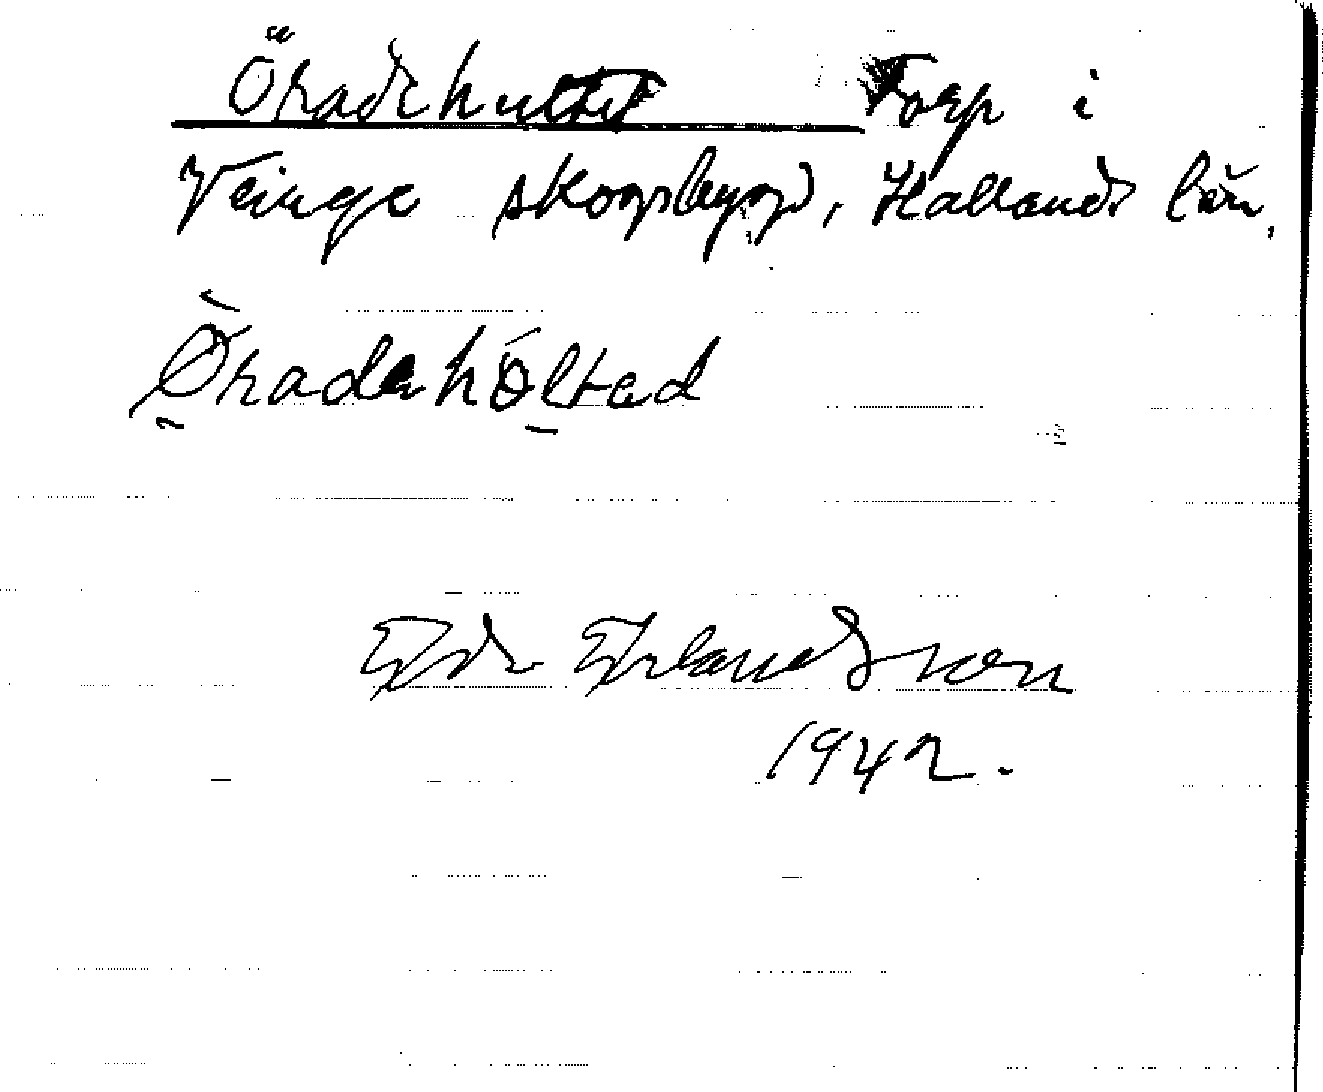 Öradehultet Torp i
Veinge skogsbygd, Hallands län.
Øradahøltad
Edv. Erlandsson
1942.